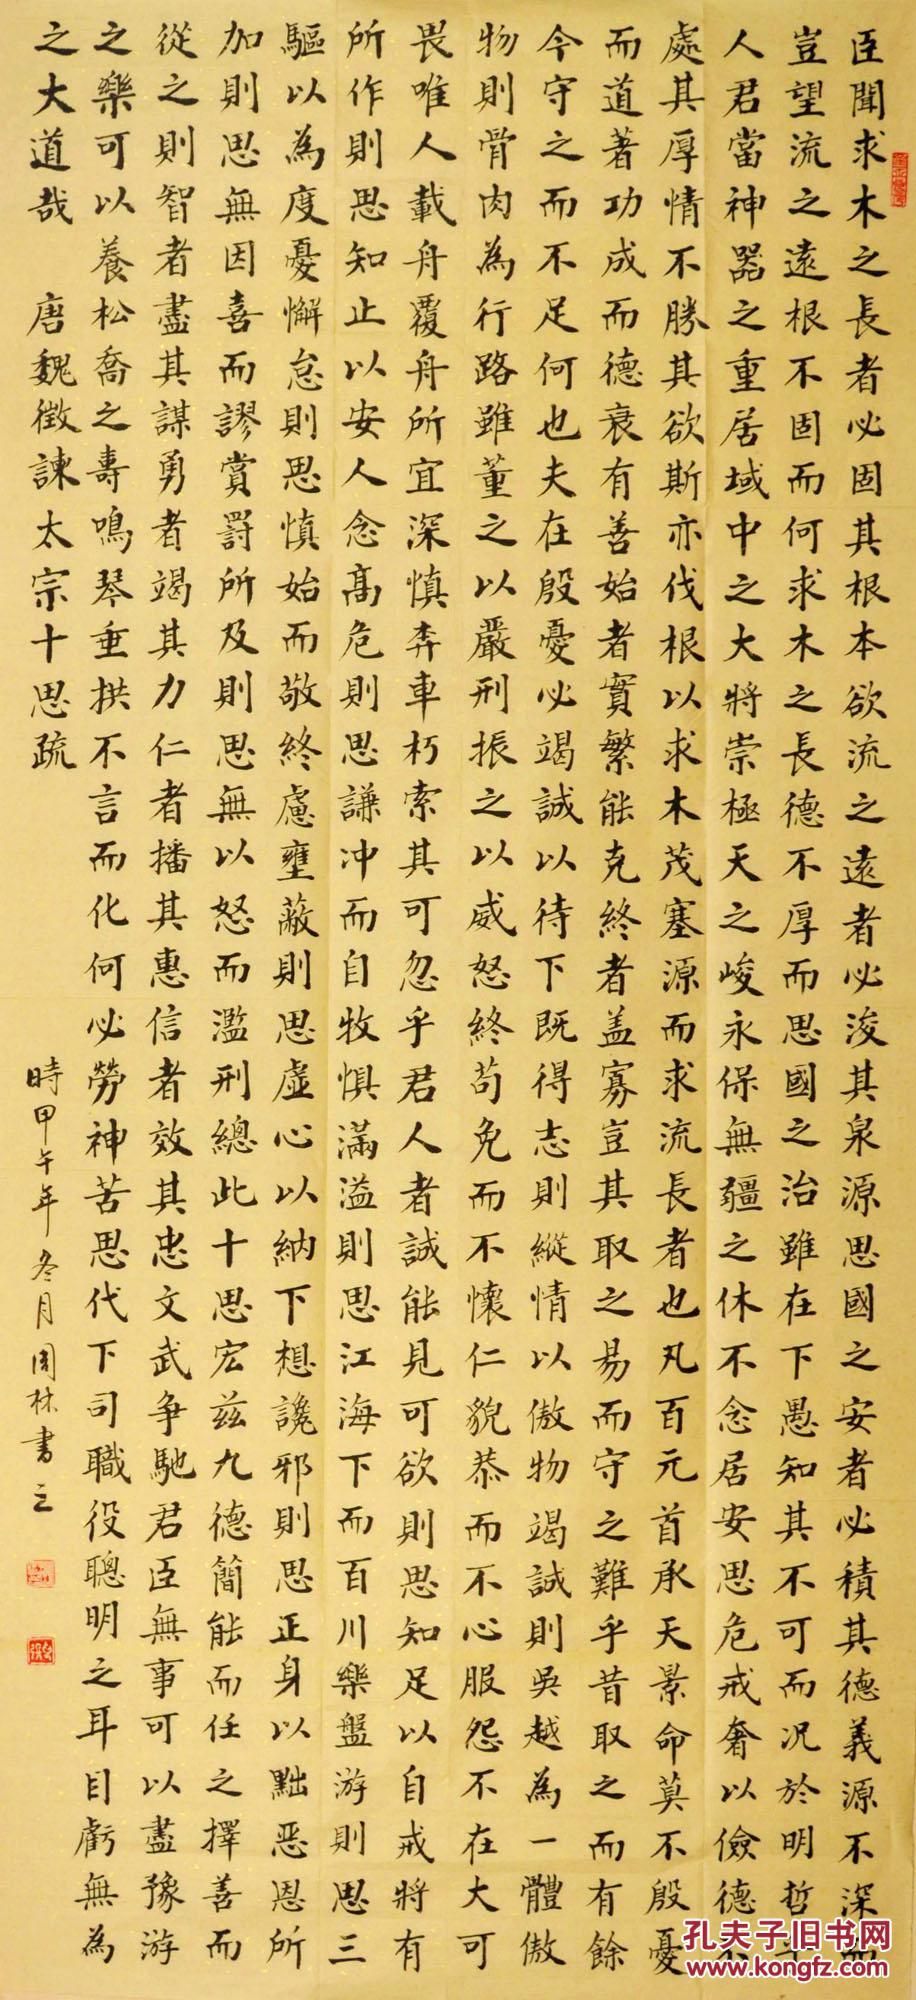 臣聞求木之長者必固其根本欲流之遠者必浚其泉源思國之安者必積其德義源不深而
豈望流之遠根不固而何求木之長德不厚而思國之治雖在下愚知其不可而況於明哲乎
人君當神器之重居域中之大將崇極天之峻永保無疆之休不念居安思危戒奢以儉德不
處其厚情不勝其欲斯亦伐根以求木茂塞源而求流長者也凡百元首承天景命莫不殷憂
而道著功成而德衰有善始者實繁能克終者盖寡豈其取之易而守之難乎昔取之而有餘
今守之而不足何也夫在殷憂必竭誠以待下既得志則縱情以傲物竭誠則吳越為一體傲
物則骨肉為行路雖董之以嚴刑振之以威怒終苟免而不懷仁貌恭而不心服怨不在大可
畏唯人載舟覆舟所宜深慎奔車朽索其可忽乎君人者誠能見可欲則思知足以自戒將有
所作則思知止以安人念高危則思謙冲而自牧懼滿溢則思江海下而百川樂盤游則思三
驅以為度憂懈怠則思慎始而敬終慮壅蔽則思虛心以納下想讒邪則思正身以黜惡恩所
加則思無因喜而謬賞罰所及則思無以怒而濫刑總此十思宏茲九德簡能而任之擇善而
從之則智者盡其謀勇者竭其力仁者播其惠信者效其忠文武爭馳君臣無事可以盡豫游
之樂可以養松喬之壽鳴琴垂拱不言而化何必勞神苦思代下司職役聰明之耳目虧無為
之大道哉 唐魏徵諫太宗十思疏
時甲午年冬月周林書之
孔夫子旧书网
www.kongfz.com